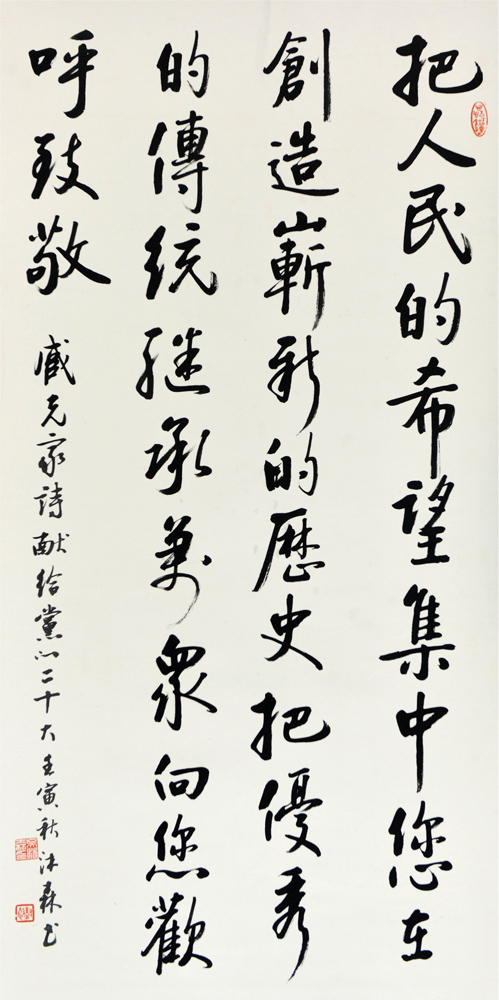 把人民的希望集中您在
創造嶄新的歷史把優秀
的傳統繼承萬眾向您歡
呼致敬
臧克家詩献给黨的二十大壬寅秋沐森书